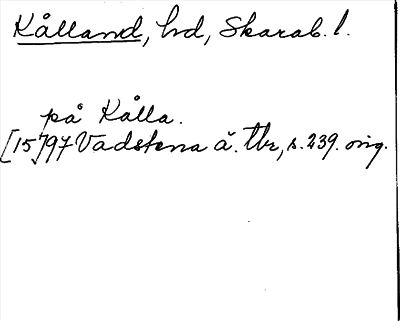 Kålland, hd, Skarab. l.
på Kålla.
[15]97 Vadstena ä. tbr, s. 239. orig.